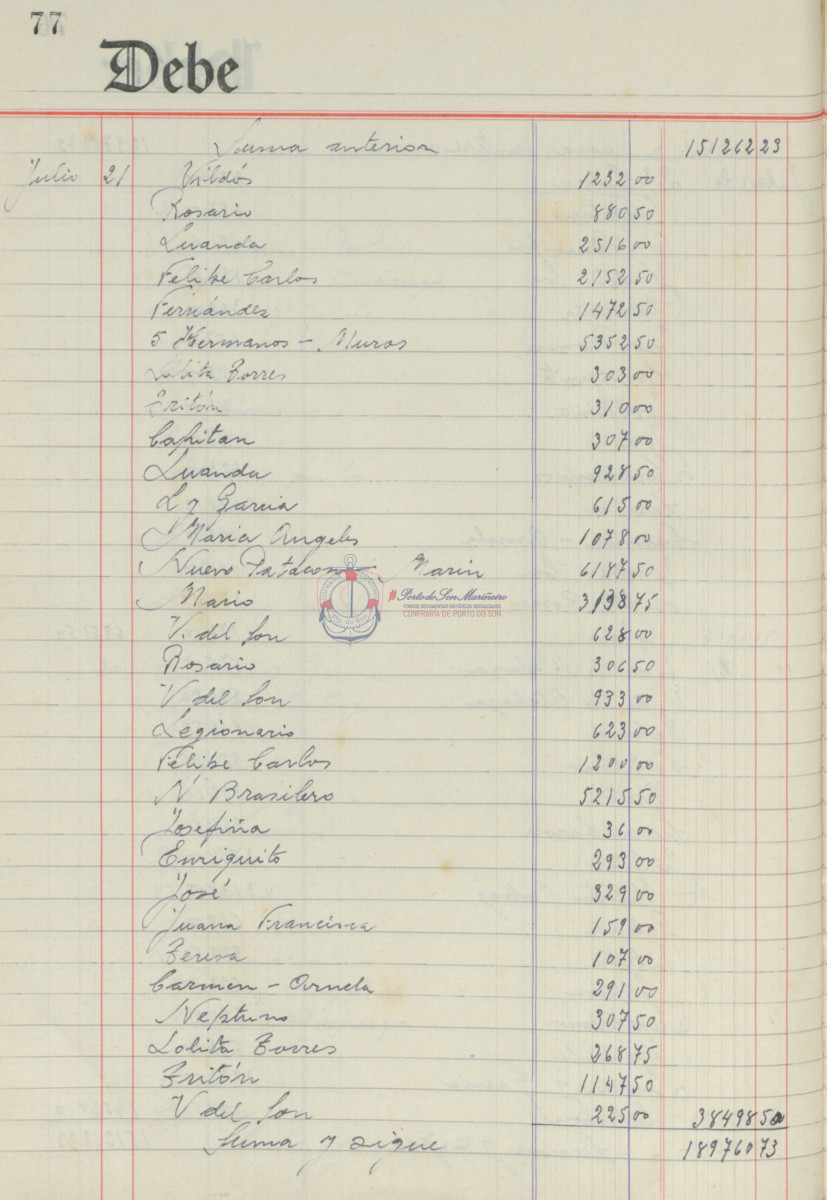 77
Debe
Suma anterior 151262 23
Julio 21 Vildós 1232 00
Rosario 880 50
Luanda 2516 00
Felipe Carlos 2152 50
Fernández 1472 50
5 Hermanos - Muros 5352 50
Lolita Torres 303 00
Tritón 310 00
Capitan 307 00
Luanda 928 50
L y Garcia 615 00
Maria Angeles 1078 00
Nuevo Patacon - Marin 6187 50
Mario 3138 75
V. del Son 628 00
Rosario 306 50
V del Son 933 00
Legionario 623 00
Felipe Carlos 1200 00
N Brasilero 5215 50
Josefina 36 00
Enriquito 293 00
José 329 00
Juana Francisca 159 00
Teresa 107 00
Carmen - Ornela 291 00
Neptuno 307 50
Lolita Torres 268 75
Tritón 1147 50
V del Son 225 00 38498 50
Suma y sigue 189760 73
Porto do Son Mariñeiro
FONDOS DOCUMENTAIS HISTÓRICOS DIXITALIZADOS
CONFRARÍA DE PORTO DO SON